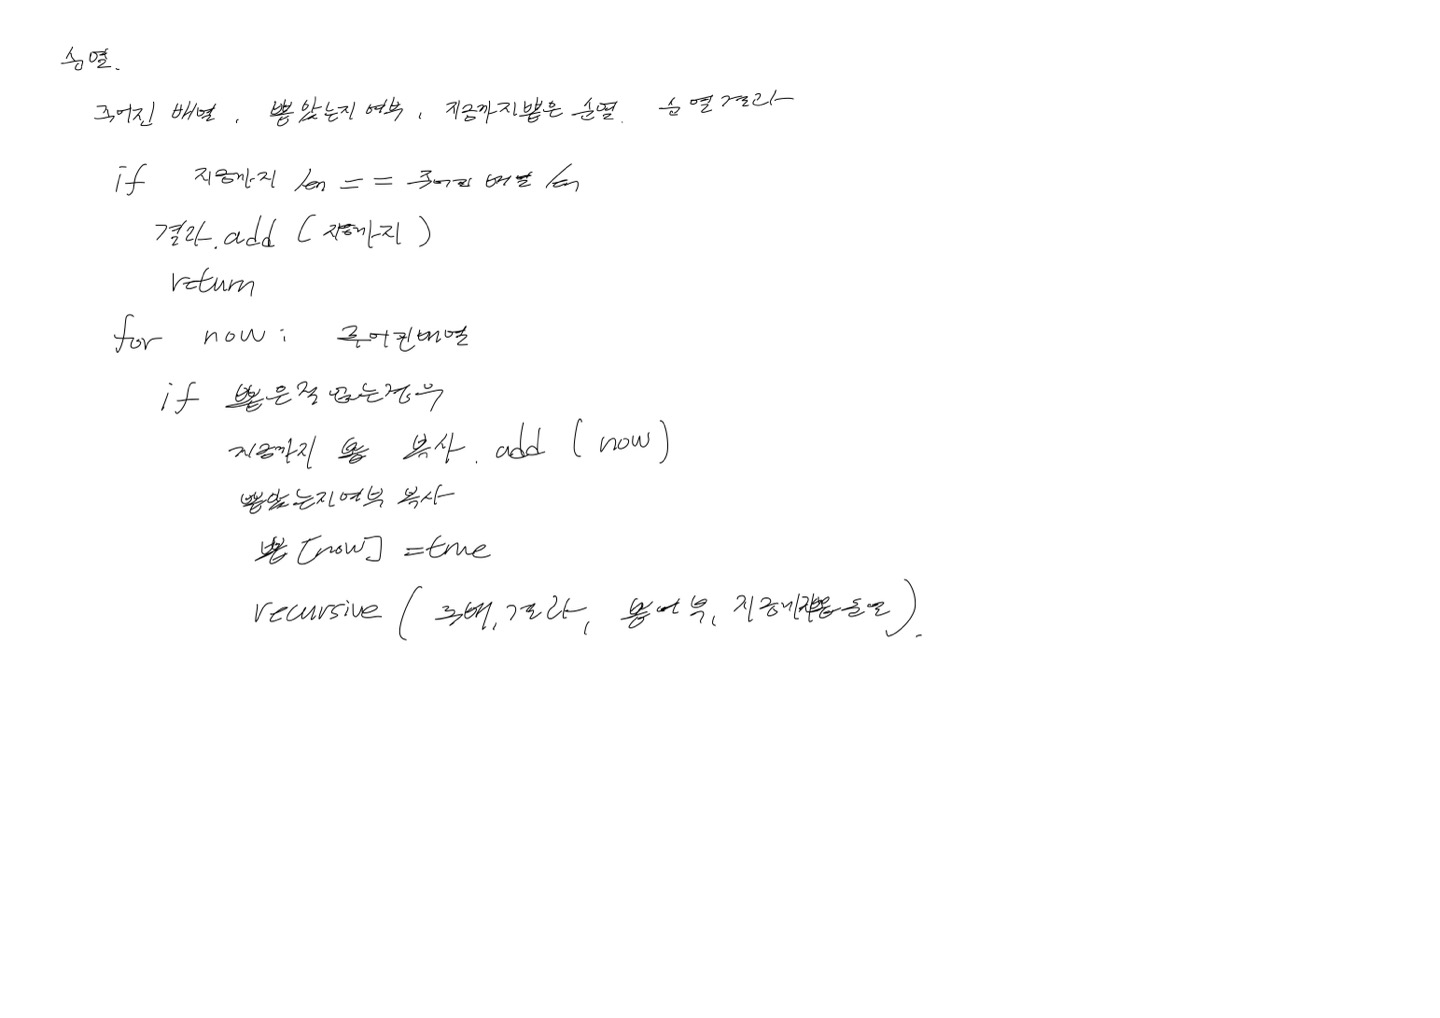 순열.
주어진 배열, 뽑았는지 여부, 지금까지뽑은 순열. 순열결과
if 지금까지 len == 주어진 배열 len
결과.add (지금까지)
return
for now: 주어진배열
if 뽑은적 없는경우
지금까지 복사.add (now)
뽑았는지여부 복사
뽑[now] =true
recursive ( 주배, 결과, 뽑여부, 지금까지뽑은순열 ).